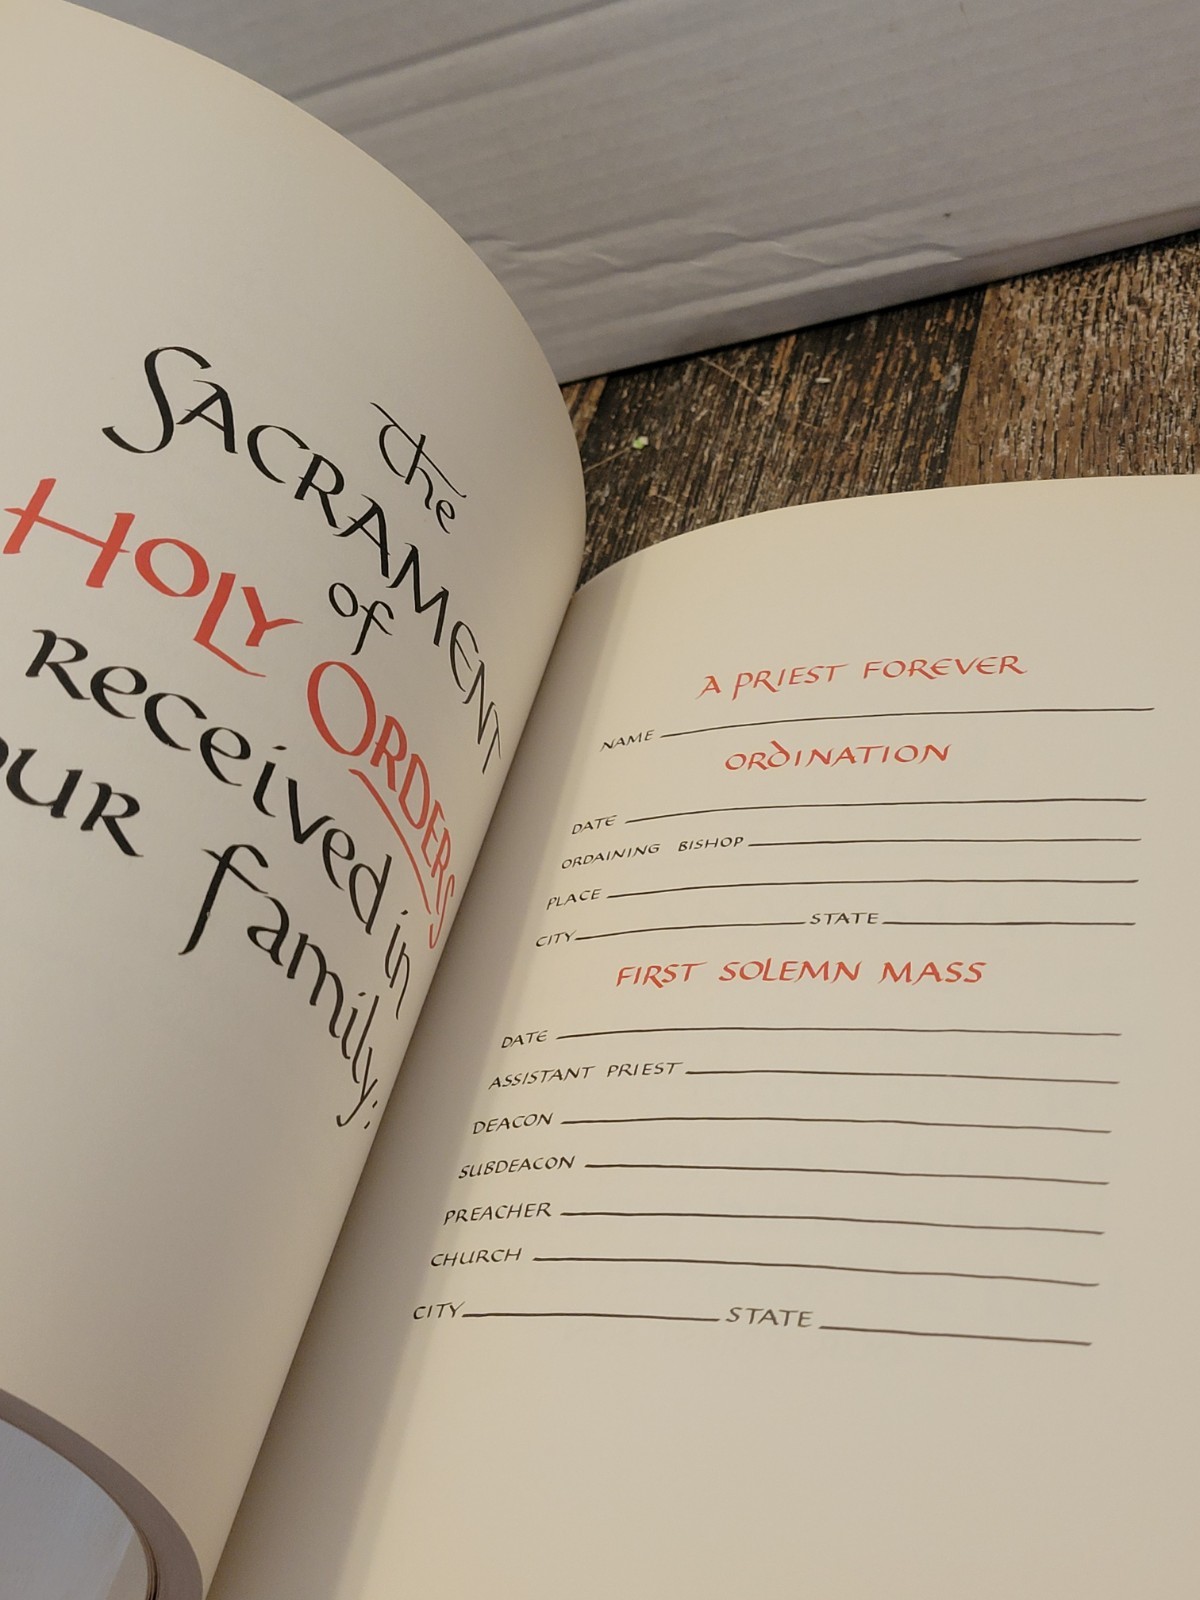 the
SACRAMENT
of
HOLY ORDERS
received in
our family:
A PRIEST FOREVER
NAME
ORDINATION
DATE
ORDAINING BISHOP
PLACE
CITY STATE
FIRST SOLEMN MASS
DATE
ASSISTANT PRIEST
DEACON
SUBDEACON
PREACHER
CHURCH
CITY STATE